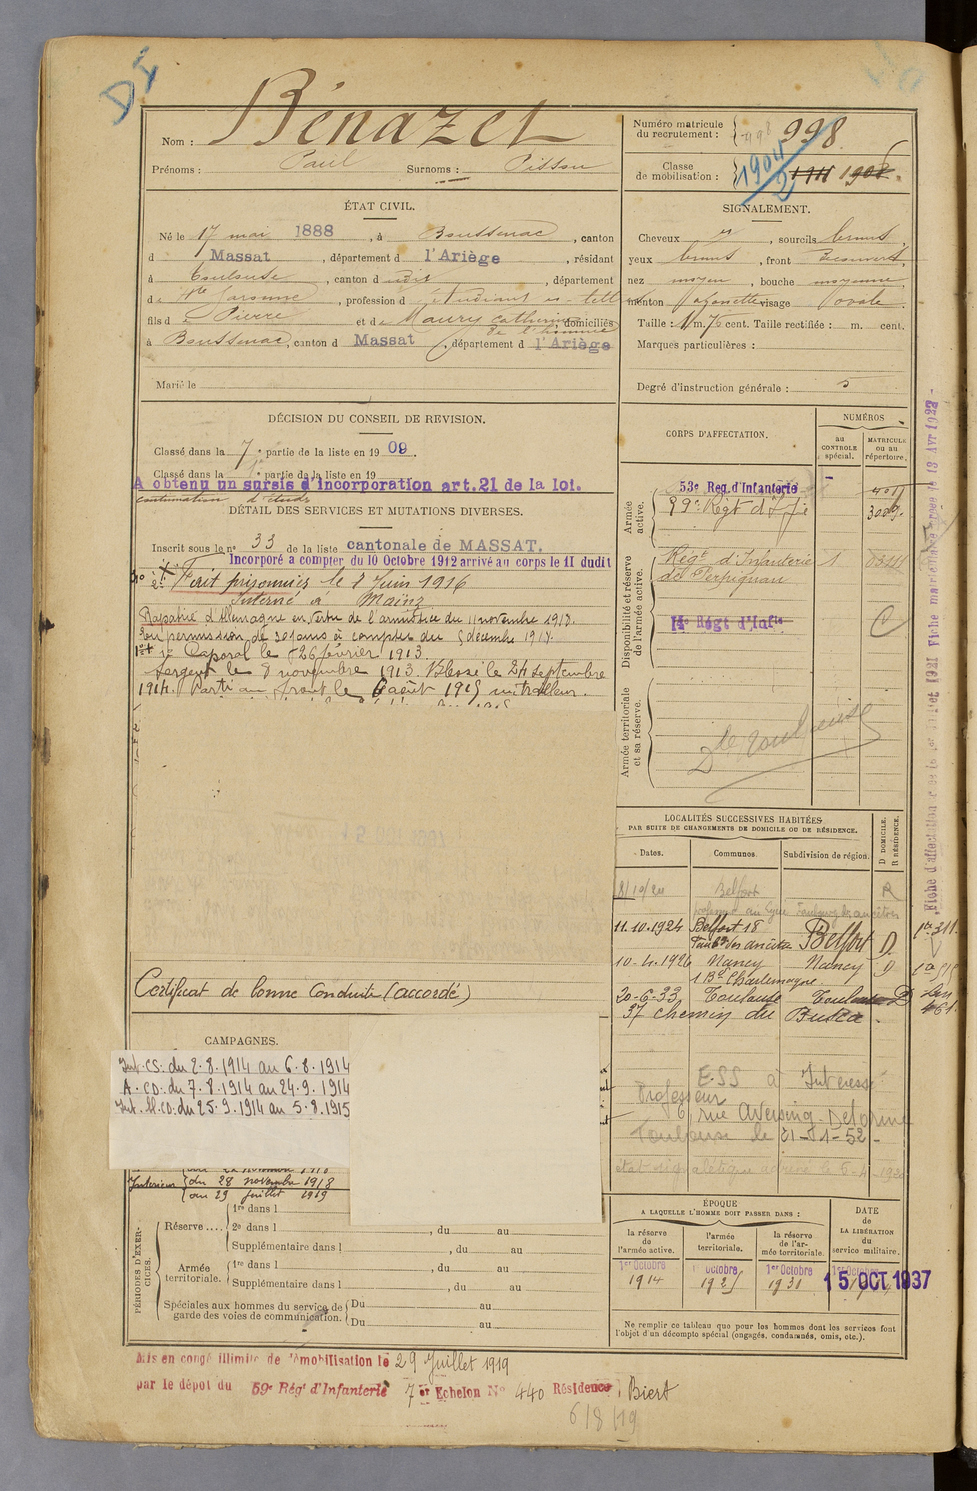 DI
Nom : Bénazet
Prénoms : Paul Surnoms : Pistou
Numéro matricule du recrutement : 998
Classe de mobilisation : 1904/2 1911 1908
ÉTAT CIVIL.
Né le 17 mai 1888, à Boussenac, canton
d Massat, département d l'Ariège, résidant
à Toulouse, canton d udit, département
de Hte Garonne, profession d étudiant es-lett
fils d e Pierre et de Maury Catherine domiciliés
à Boussenac, canton d Massat, département d l'Ariège
Marié le
SIGNALEMENT.
Cheveux , sourcils bruns,
yeux bruns, front découvert,
nez moyen, bouche moyenne,
menton à fossette visage ovale.
Taille : 1 m. 75 cent. Taille rectifiée : m. cent.
Marques particulières :
Degré d'instruction générale : 5
DÉCISION DU CONSEIL DE REVISION.
Classé dans la 7e partie de la liste en 1909.
Classé dans la e partie de la liste en 19
A obtenu un sursis d'incorporation art.21 de la loi.
continuation d'études
DÉTAIL DES SERVICES ET MUTATIONS DIVERSES.
Inscrit sous le n° 33 de la liste cantonale de MASSAT.
Incorporé à compter du 10 Octobre 1912 arrivé au corps le 11 dudit
Fait prisonnier le 8 Juin 1916
Interné à Mainz
Rapatrié d'Allemagne en vertu de l'armistice du 11 novembre 1918.
En permission de 30 jours à compter du 5 décembre 1918.
Caporal le 26 février 1913.
Sergent le 8 novembre 1913. Blessé le 24 septembre
1914. Parti au front le 6 août 1915 mitrailleur.
Certificat de bonne Conduite (accordé)
CORPS D'AFFECTATION.
NUMÉROS
au CONTROLE spécial.
MATRICULE ou au répertoire.
Armée active.
53e Reg. d'Infanterie
59e Régt d'Infie
Disponibilité et réserve de l'armée active.
Régt d'Infanterie 1
de Perpignan
14e Régt d'Infie
Armée territoriale et sa réserve.
Dle Toulouse
Fiche matricule
LOCALITÉS SUCCESSIVES HABITÉES
PAR SUITE DE CHANGEMENTS DE DOMICILE OU DE RÉSIDENCE.
Dates. Communes. Subdivision de région. D DOMICILE. R RÉSIDENCE.
8/10/24 Belfort R
professeur au lycée Faubourg des ancêtres
11.10.1924 Belfort 18 Belfort D
Faubg des ancêtres
10-4-1926 Nancy Nancy D
1 Bd Charlemagne
20-6-33 Toulouse Toulouse D
37 chemin du Busca.
ESS à Intéressé
Professeur
rue Aversing-Delorme
Toulouse le 21-1-52-
état signalétique adressé le 6-4-192
CAMPAGNES.
Int. CS. du 2.8.1914 au 6.8.1914
A. CD. du 7.8.1914 au 24.9.1914
Int. bl. CD. du 25.9.1914 au 5.8.1915
Interieur du 28 novembre 1918
au 29 Juillet 1919
PÉRIODES D'EXERCICES.
Réserve....
1re dans l
2e dans l , du au
Supplémentaire dans l , du au
Armée territoriale.
1re dans l , du au
Supplémentaire dans l , du au
Spéciales aux hommes du service de garde des voies de communication.
Du au
Du au
ÉPOQUE
A LAQUELLE L'HOMME DOIT PASSER DANS :
la réserve de l'armée active.
l'armée territoriale.
la réserve de l'armée territoriale.
DATE de LA LIBÉRATION du service militaire.
1er Octobre 1914
Octobre 1925
1er Octobre 1931
1er Octobre
15 OCT 1937
Ne remplir ce tableau que pour les hommes dont les services font
l'objet d'un décompte spécial (engagés, condamnés, omis, etc.).
Mis en congé illimité de démobilisation le 29 Juillet 1919
par le dépôt du 59e Rég' d'Infanterie 7e Echelon N° 440 Résidence Biert
6/8/19